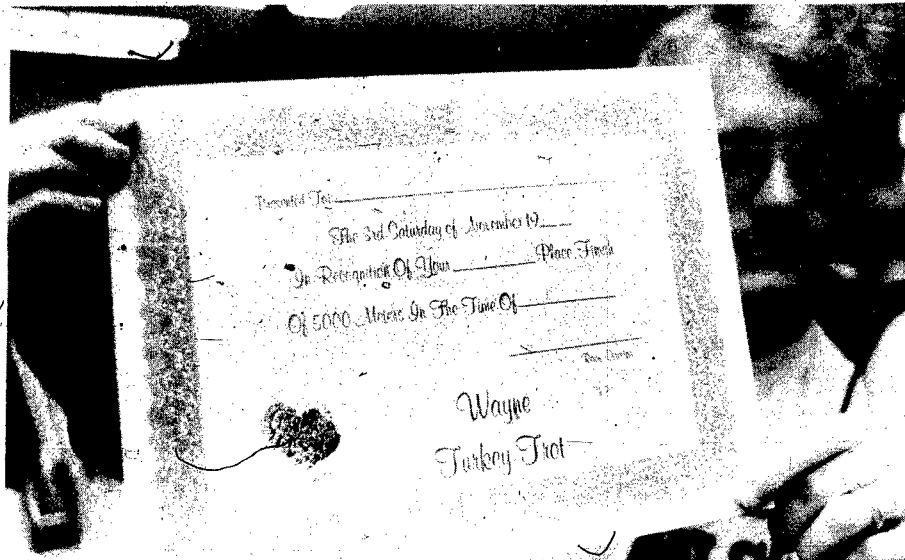 Presented To:
The 3rd Saturday of November 19
In Recognition Of Your Place Finish
Of 5000 Meters In The Time Of
Race Director
Wayne
Turkey Trot